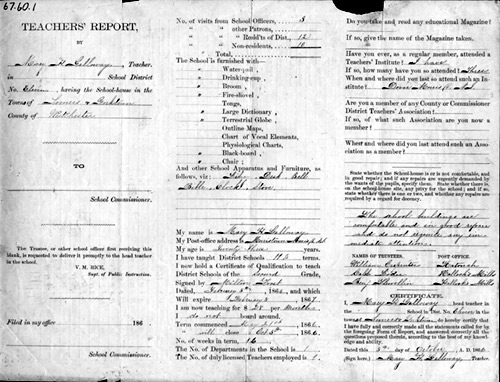 67.60.1
TEACHERS' REPORT,
BY
Mary H. Galloway, Teacher,
in School District
No. Eleven, having the School-house in the
Towns of Somers &
County of Westchester
TO
School Commissioner.
The Trustee, or other school officer first receiving this
blank, is requested to deliver it promptly to the head teacher
in the school.
V. M. RICE,
Supt. of Public Instruction.
Filed in my office 186
School Commissioner.
No. of visits from School Officers, 3
" other Patrons,
" Resid'ts of Dist., 12
" Non-residents, 10
" Total,
The School is furnished with—
" Water-pail,
" Drinking-cup,
" Broom,
" Fire-shovel,
" Tongs,
" Large Dictionary,
" Terrestrial Globe,
" Outline Maps,
" Chart of Vocal Elements,
" Physiological Charts,
" Black-board,
" Chair;
And other School Apparatus and Furniture, as
follows, viz: Desk, Bell
Clock, Stove
My name is Mary H. Galloway
My Post-office address is
My age is Twenty Nine years.
I have taught District Schools 11½ terms.
I now hold a Certificate of Qualification to teach
District Schools of the Second Grade,
Signed by
Dated, February 3rd 1866, and which
Will expire February 3 1867
I am now teaching for $ 28 per Month:
I do not board around.
Term commenced May 21st 1866
" will close Oct 5th 1866
No. of weeks in term, 16
The No. of Departments in the School is 1
The No. of duly licensed Teachers employed is 1.
Do you take and read any educational Magazine!
If so, give the name of the Magazine taken.
Have you ever, as a regular member, attended a
Teachers' Institute! I have
If so, how many have you so attended! Three
When and where did you last attend such an In-
stitute!
Are you a member of any County or Commissioner
District Teachers' Association!
If so, of what such Association are you now a
member!
When and where did you last attend such an Asso-
ciation as a member!
State whether the School-house is or is not comfortable,
and in good repair; and if any repairs are urgently demanded by the
wants of the pupils, specify them. State whether there is,
on the school-house site, any privy for the school; and if so,
state whether there is one for each sex, and whether any repairs
are required by regard for decency.
The school buildings are
comfortable and in good repair
and do not require any im
mediate attention.
NAMES OF TRUSTEES. POST OFFICE.
William Carpenter Katonah
CERTIFICATE.
I, Mary H. Galloway, head teacher
in the School in Dist. No. Eleven in the
town of Somers, do hereby certify that
I have fully and correctly made all the statements called for by
the foregoing Form of Report, and answered correctly all the
questions proposed therein, according to the best of my knowl-
edge and ability.
Dated this 5th day of October, A. D. 1866
(Sign here) Mary H. Galloway, Teacher.